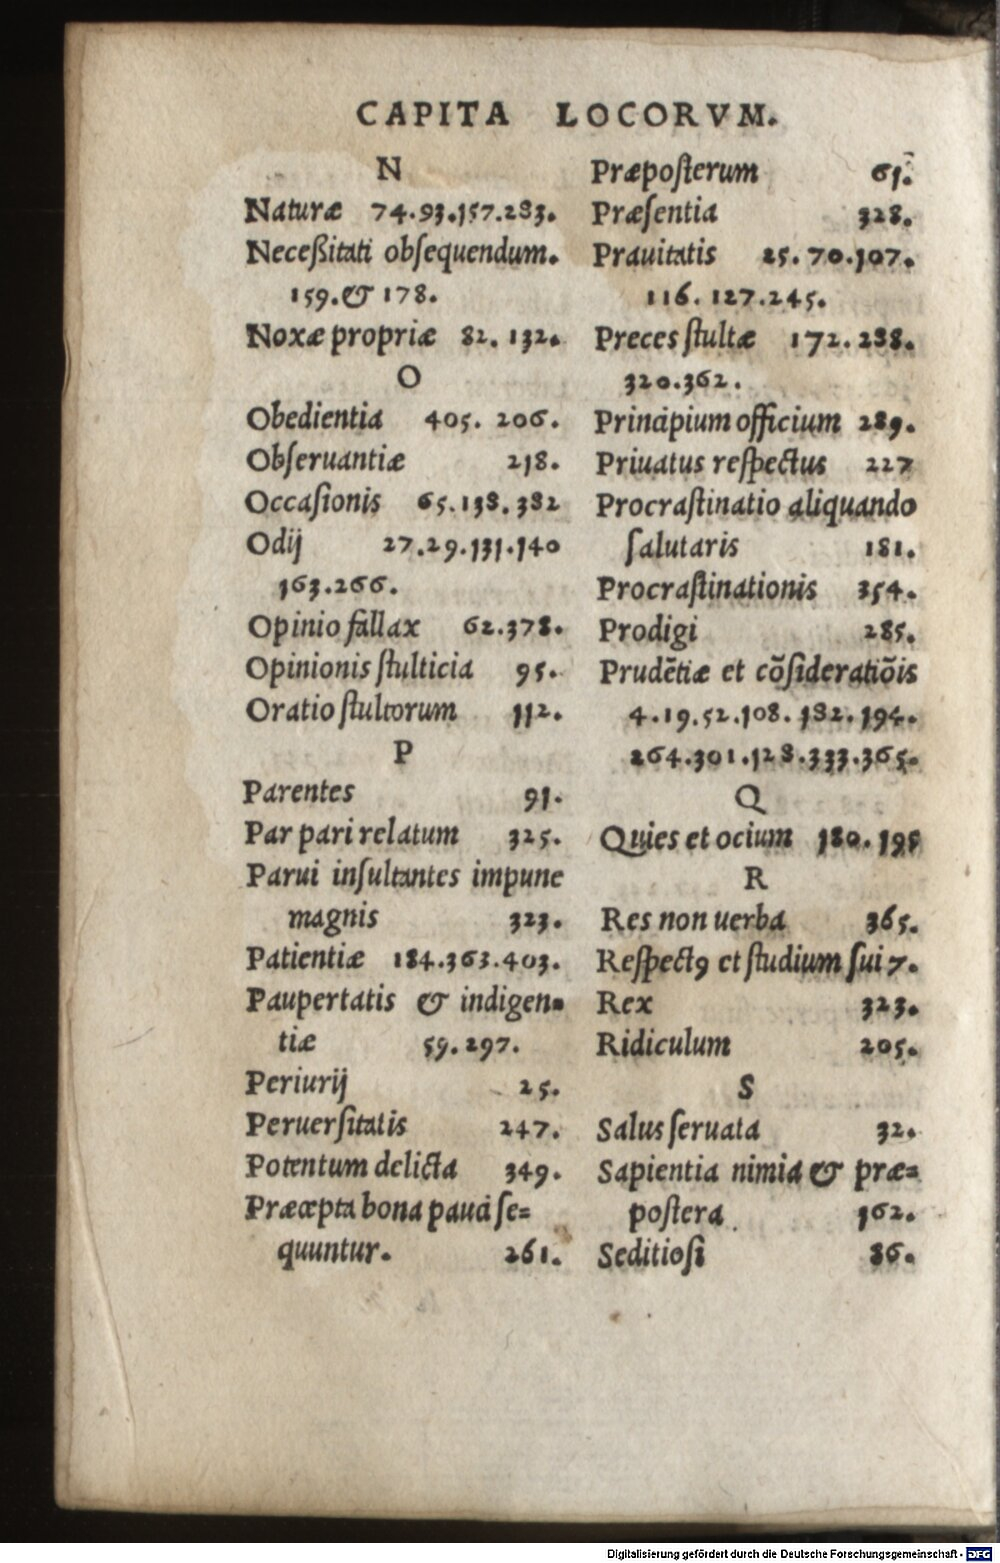 CAPITA LOCORVM.
N
Naturæ 74.93.157.283.
Neceßitati obſequendum.
159.& 178.
Noxæ propriæ 82. 132.
O
Obedientia 405. 206.
Obſeruantiæ 218.
Occaſionis 65.138.382
Odij 27.29.131.140
163.266.
Opinio fallax 62.378.
Opinionis ſtulticia 95.
Oratio ſtultorum 112.
P
Parentes 91.
Par pari relatum 325.
Parui inſultantes impune
magnis 323.
Patientiæ 184.363.403.
Paupertatis & indigen-
tiæ 59.297.
Periurij 25.
Peruerſitatis 247.
Potentum delicta 349.
Præcepta bona pauci ſe=
quuntur. 261.
Præpoſterum 61.
Præſentia 328.
Prauitatis 25.70.107.
116. 127.245.
Preces ſtultæ 172.288.
320.362.
Principium officium 289.
Priuatus reſpectus 227
Procraſtinatio aliquando
ſalutaris 181.
Procraſtinationis 354.
Prodigi 285.
Prudẽtiæ et cõſideratiõis
4.19.52.108.182.194.
264.301.128.333.365.
Q
Quies et ocium 180.195
R
Res non uerba 365.
Reſpectꝰ et ſtudium ſui 7.
Rex 323.
Ridiculum 205.
S
Salus ſeruata 32.
Sapientia nimia & præ=
poſtera 162.
Seditioſi 86.
Digitalisierung gefördert durch die Deutsche Forschungsgemeinschaft - DFG